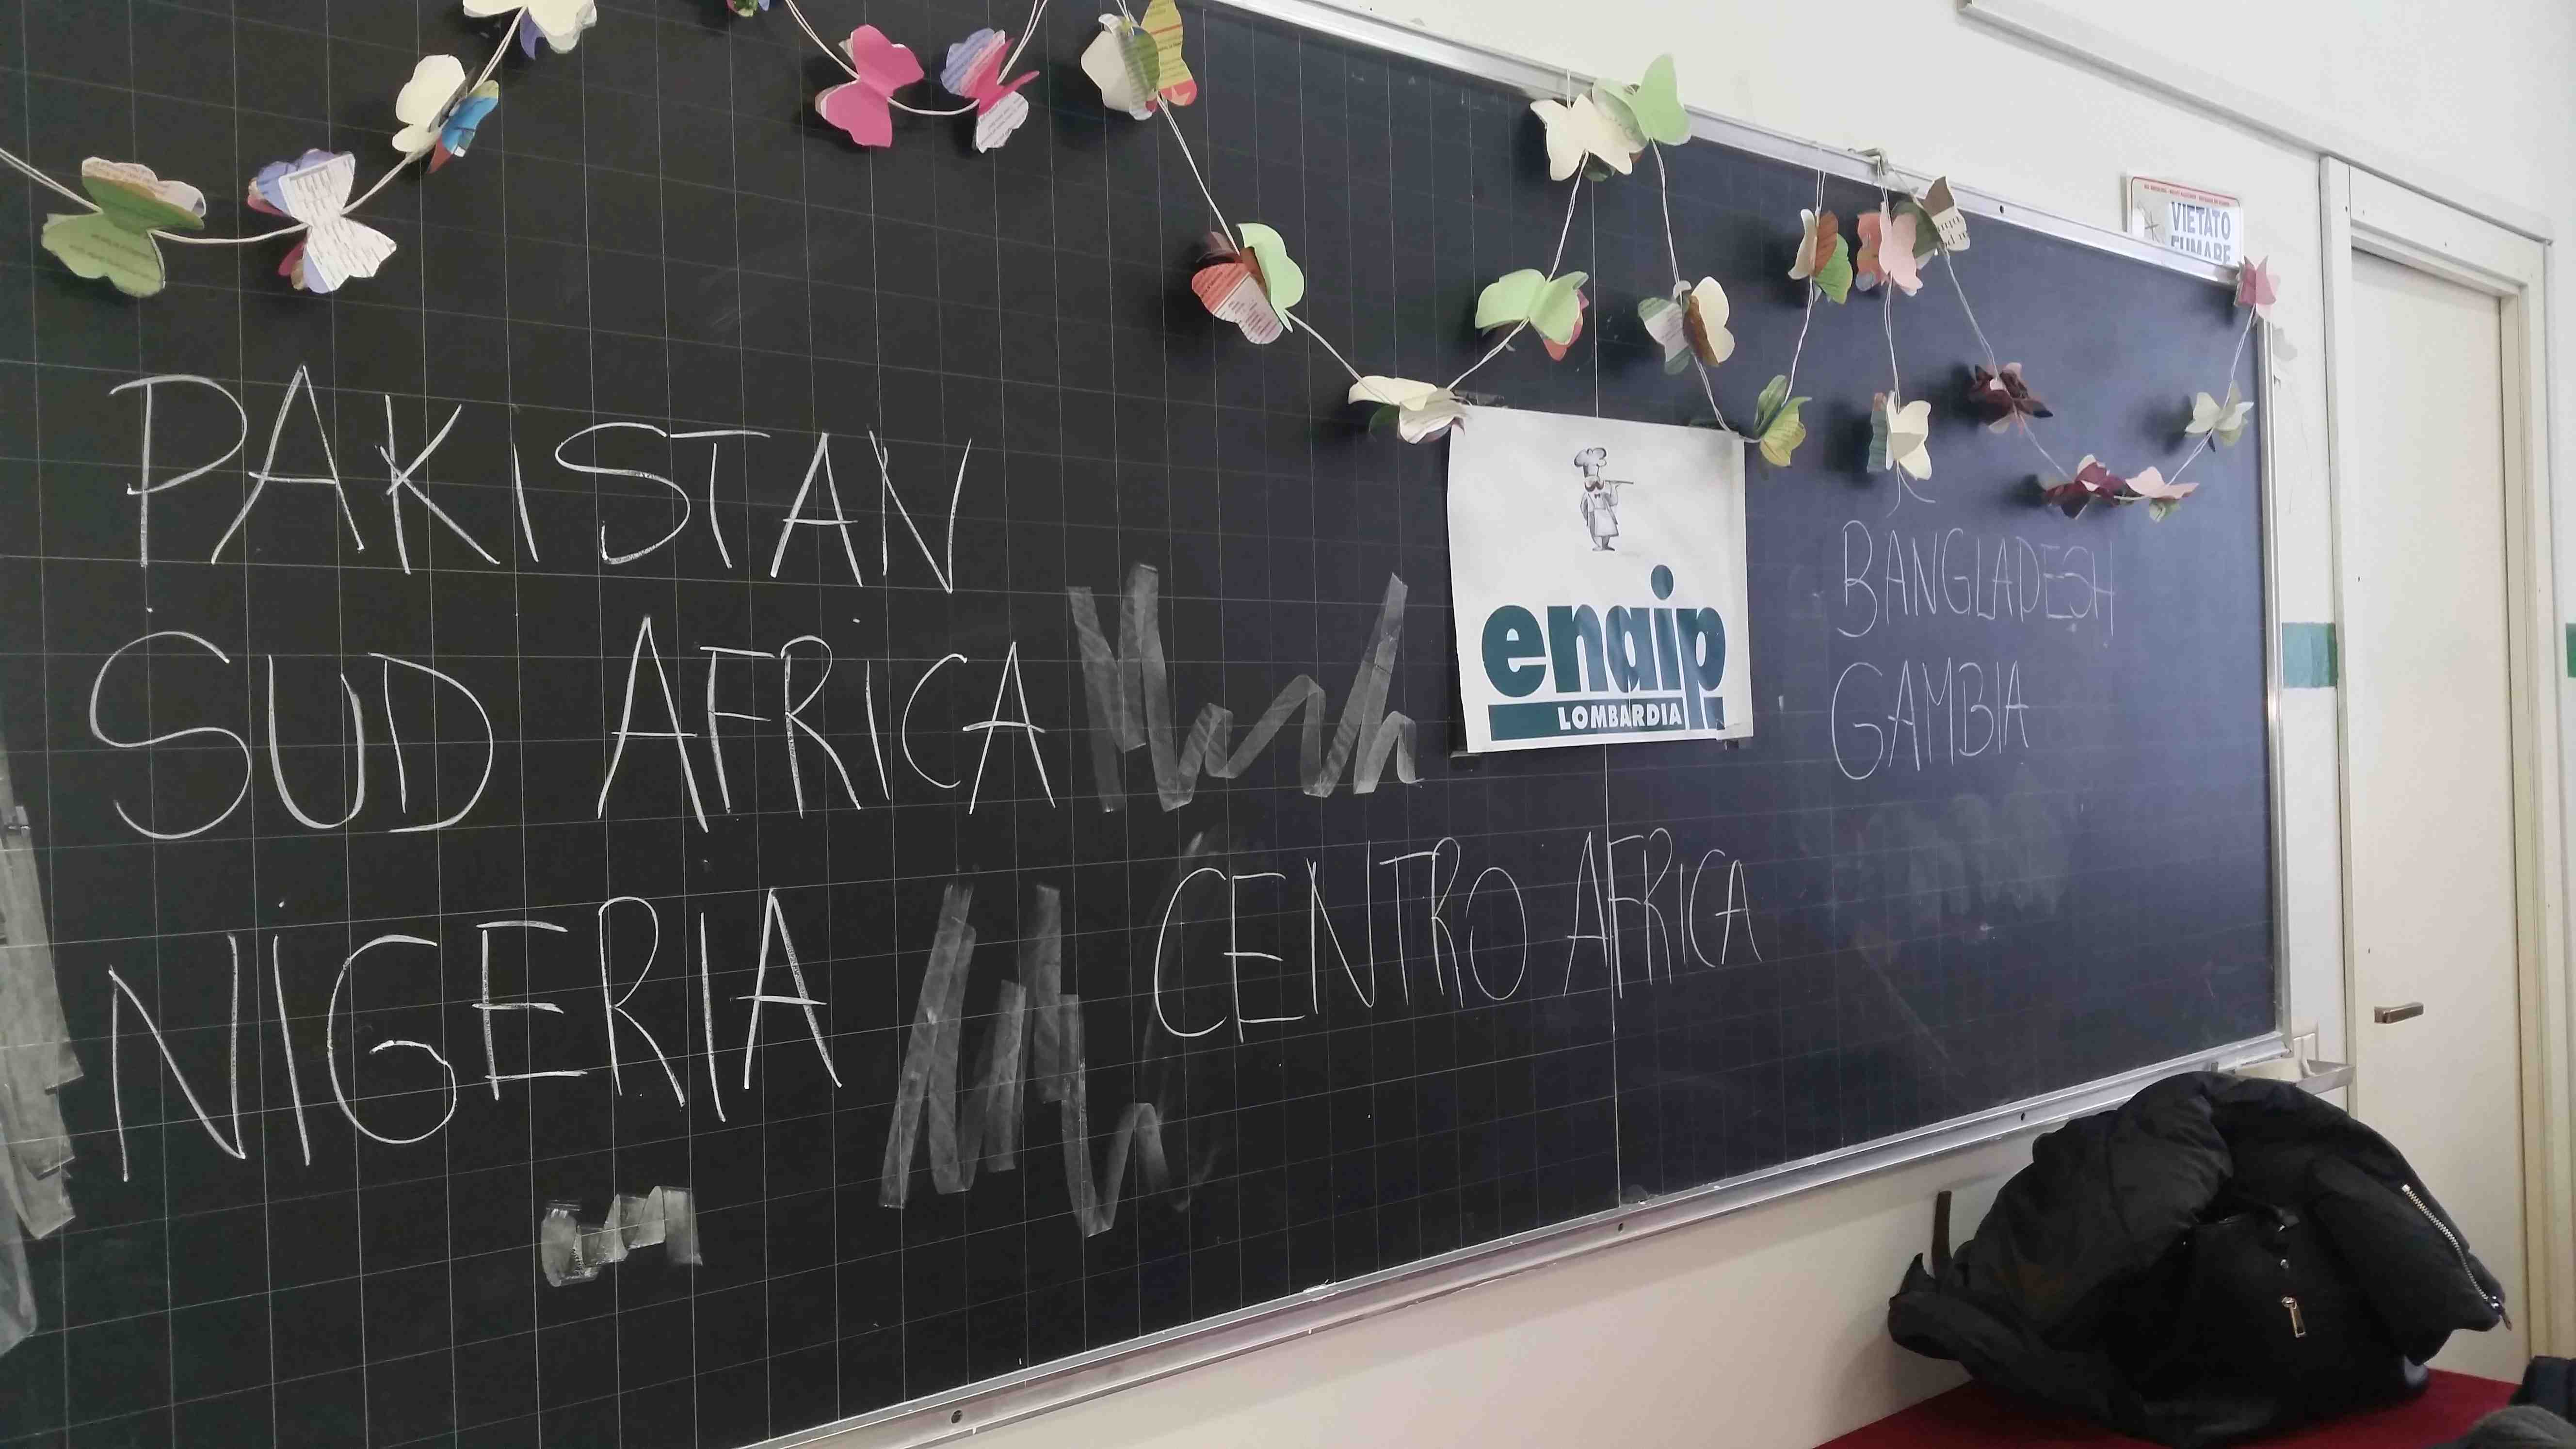 PAKISTAN
SUD AFRICA
NIGERIA
CENTRO AFRICA
enaip
LOMBARDIA
BANGLADESH
GAMBIA
VIETATO
FUMARE